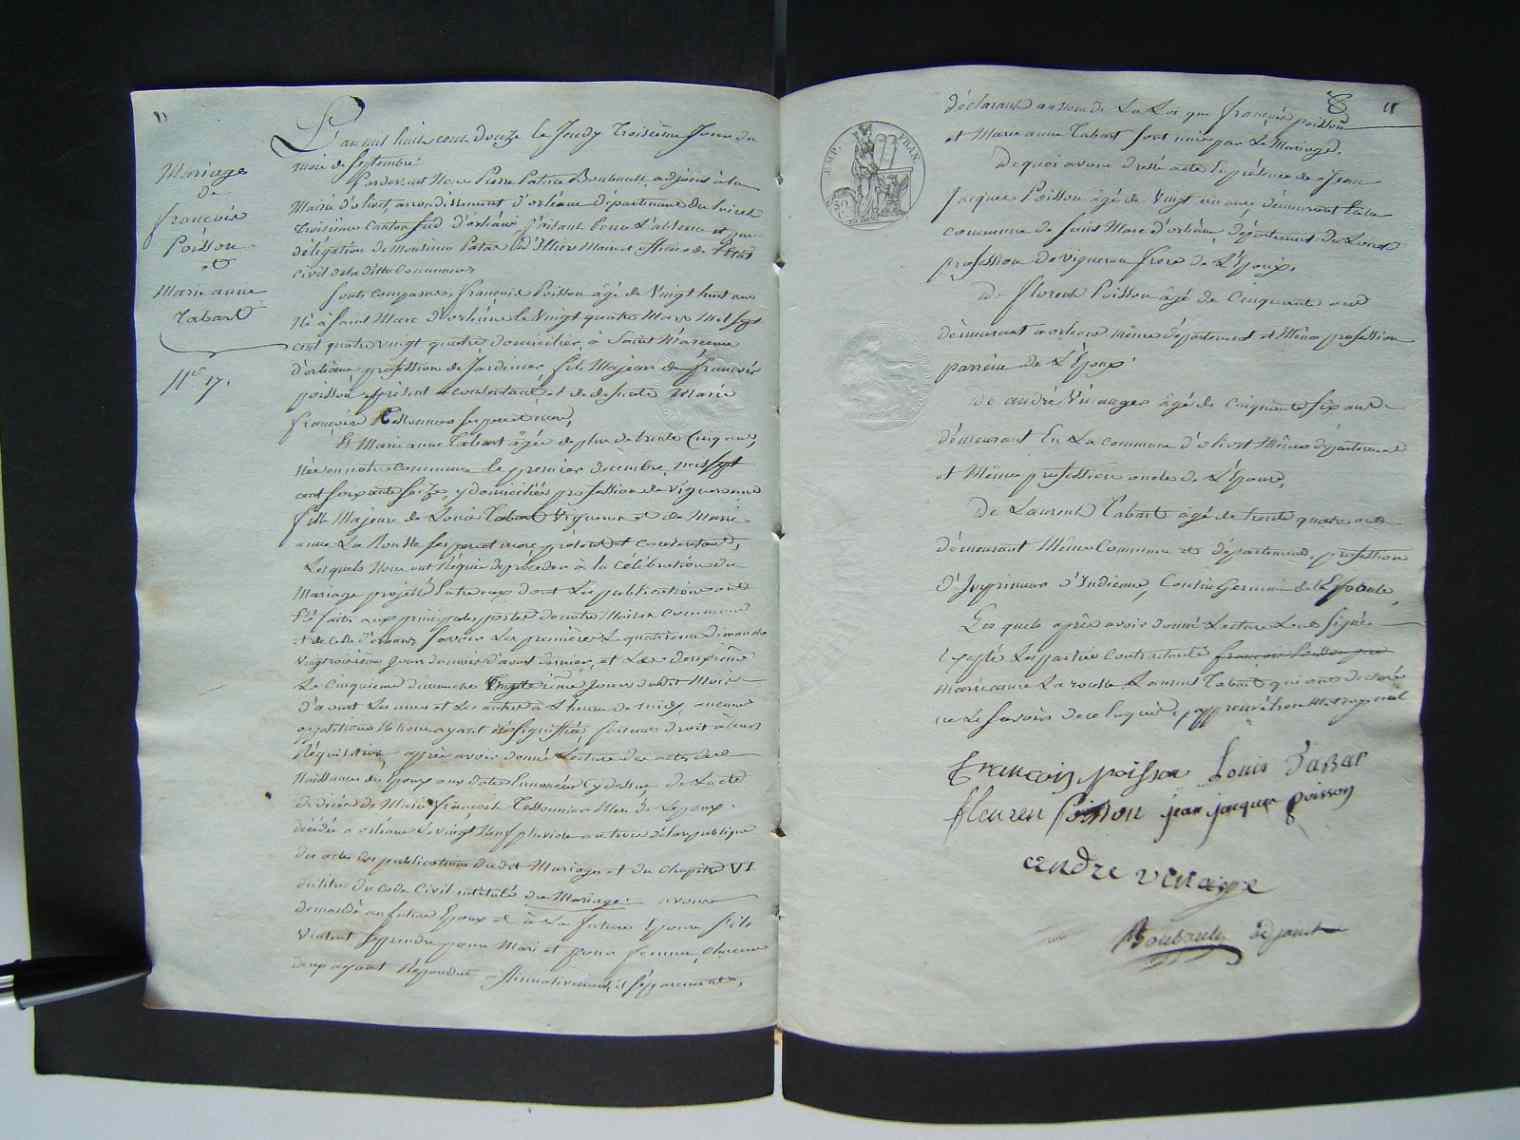 Mariage
de
françois
Poisson
et
Marie anne
Tabart
N.º 17.
L'an mil huit cent Douze le Jeudy Troisième Jour du
mois de Septembre
Pardevant Nous Pierre Patrice Boubault adjoint à la
Mairie d'olivet, arrondissement d'orleans département du Loiret
troisième Canton sud d'orléans faisant pour L'absence et par
délégation de Monsieur Patas d'Illiers Maire et officier de l'Etat
civil de la ditte Commune
Sont comparus, françois Poisson âgé de Vingt huit ans
Né à Saint Marc d'orléans le Vingt quatre Mars Mil sept
cent quatre vingt quatre domicilié, à Saint Marceau
d'orléans profession de Jardinier, fils Majeur de françois
poisson présent et consentant et de defunte Marie
françoise Tellonnier ses pere et mere,
Et Marie anne Tabart âgée de plus de trente Cinq ans,
Née en notre commune le premier decembre mil sept
cent soixante seize, y domiciliée profession de Vigneronne
fille Majeure de Louis Tabart Vigneron et de Marie
anne La Roulle ses pere et mere présent et consentant,
Lesquels Nous ont Requis de proceder à la célébration du
Mariage projetté Entre eux dont Les publications ont
Eté faites aux principales portes de notre Maison commune
et de celle d'orleans savoir La première Le quatrieme dimanche
Vingt troisième Jour du mois d'aout dernier, et La deuxième
Le Cinquieme dimanche trentième Jour dudit Mois
d'aout Les unes et Les autres à L'heure de midy, aucune
opposition Ne Nous ayant été signiffiée, faisant droit à leur
Réquisition, après avoir donné Lecture des actes de
Naissance des Epoux aux dates Enoncées Cy dessus de L'acte
de décès de Marie françoise Tellonnier Mere de Lepoux
décédée a orléans Le vingt Neuf pluviose an treize de la republique
des actes de publications dudit Mariage et du chapitre VI
du titre du Code Civil intitulé du Mariage: avons
demandé au futur Epoux et à La future Epouse s'ils
Veulent se prendre pour Mari et pour femme, chacun
deux ayant Répondu affirmativement et séparément,
déclarons au nom de La Loi que françois poisson
et Marie anne Tabart sont unis par Le Mariage.
De quoi avons dressé acte En présence de Jean
Jacques Poisson âgé de Vingt six ans, demeurant En la
commune de Saint Marc d'orléans, département du Loiret
profession de vigneron frere de L'Epoux,
de florent Poisson âgé de Cinquante ans
demeurant a orléans même département et Même profession
parrein de L'Epoux
de andré Venages âgé de Cinquante six ans
démeurant En La commune d'olivet Même département
et Même profession oncle de L'Epouse,
De Laurent Tabart âgé de trente quatre ans
démeurant Même Commune et département, profession
d'Imprimeur d'Indienne, Cousin Germain de L'Epouse,
Les quels après avoir donné Lecture L'ont signé
Excepté Les parties Contractantes françois Poisson pere
Marie anne La roulle Laurent Tabart qui ont déclaré
ne Le savoir de ce Enquis, approuvé trois Mots rayés nul
françois poisson Louis Tabar
fleuren Poisson jean jacques poisson
andre venage
Boubault adjoint
EMP. FRAN.